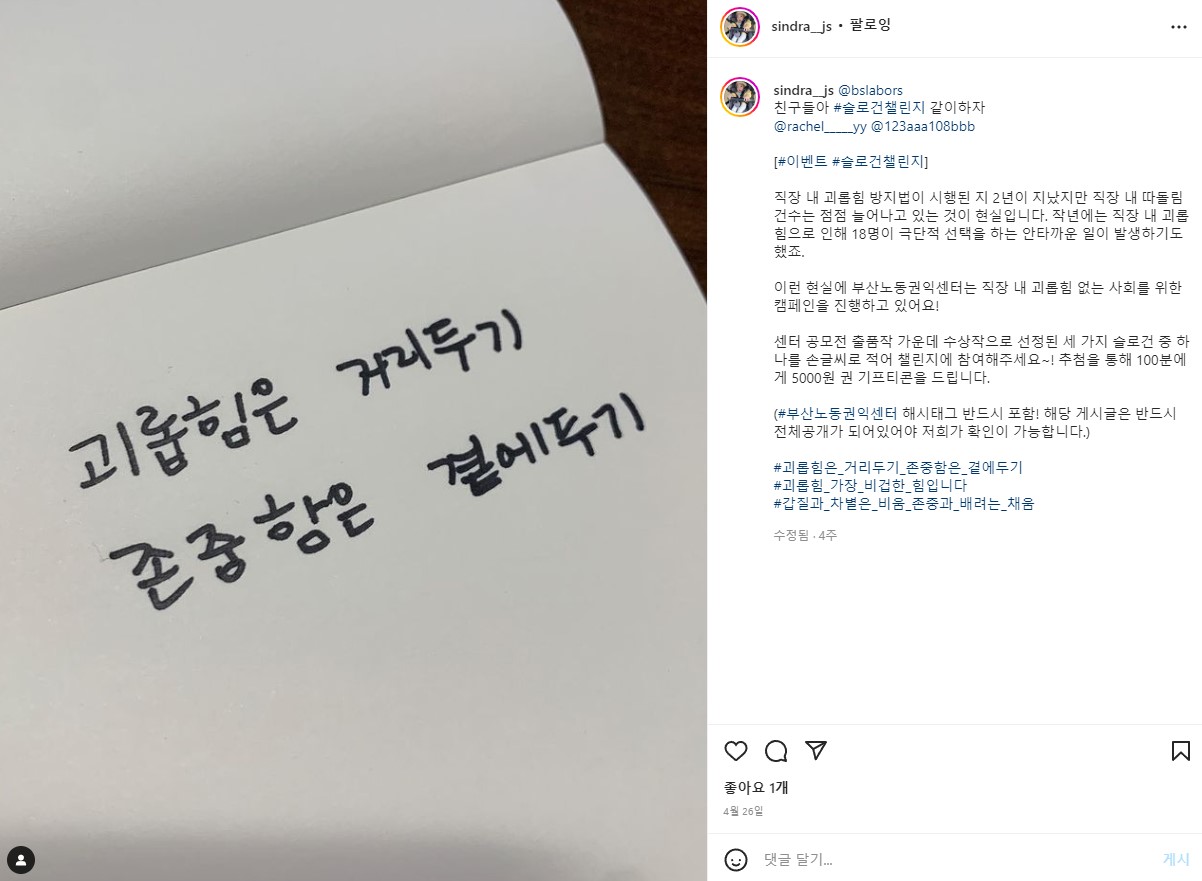 괴롭힘은 거리두기
존중함은 곁에두기
sindra__js • 팔로잉
sindra__js @bslabors
친구들아 #슬로건챌린지 같이하자
@rachel_____yy @123aaa108bbb
[#이벤트 #슬로건챌린지]
직장 내 괴롭힘 방지법이 시행된 지 2년이 지났지만 직장 내 따돌림
건수는 점점 늘어나고 있는 것이 현실입니다. 작년에는 직장 내 괴롭
힘으로 인해 18명이 극단적 선택을 하는 안타까운 일이 발생하기도
했죠.
이런 현실에 부산노동권익센터는 직장 내 괴롭힘 없는 사회를 위한
캠페인을 진행하고 있어요!
센터 공모전 출품작 가운데 수상작으로 선정된 세 가지 슬로건 중 하
나를 손글씨로 적어 챌린지에 참여해주세요~! 추첨을 통해 100분에
게 5000원 권 기프티콘을 드립니다.
(#부산노동권익센터 해시태그 반드시 포함! 해당 게시글은 반드시
전체공개가 되어있어야 저희가 확인이 가능합니다.)
#괴롭힘은_거리두기_존중함은_곁에두기
#괴롭힘_가장_비겁한_힘입니다
#갑질과_차별은_비움_존중과_배려는_채움
수정됨 · 4주
좋아요 1개
4월 26일
댓글 달기...
게시